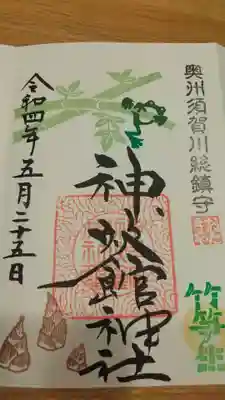 奥州須賀川総鎮守
竹笋生
神炊館神社
令和四年五月二十五日